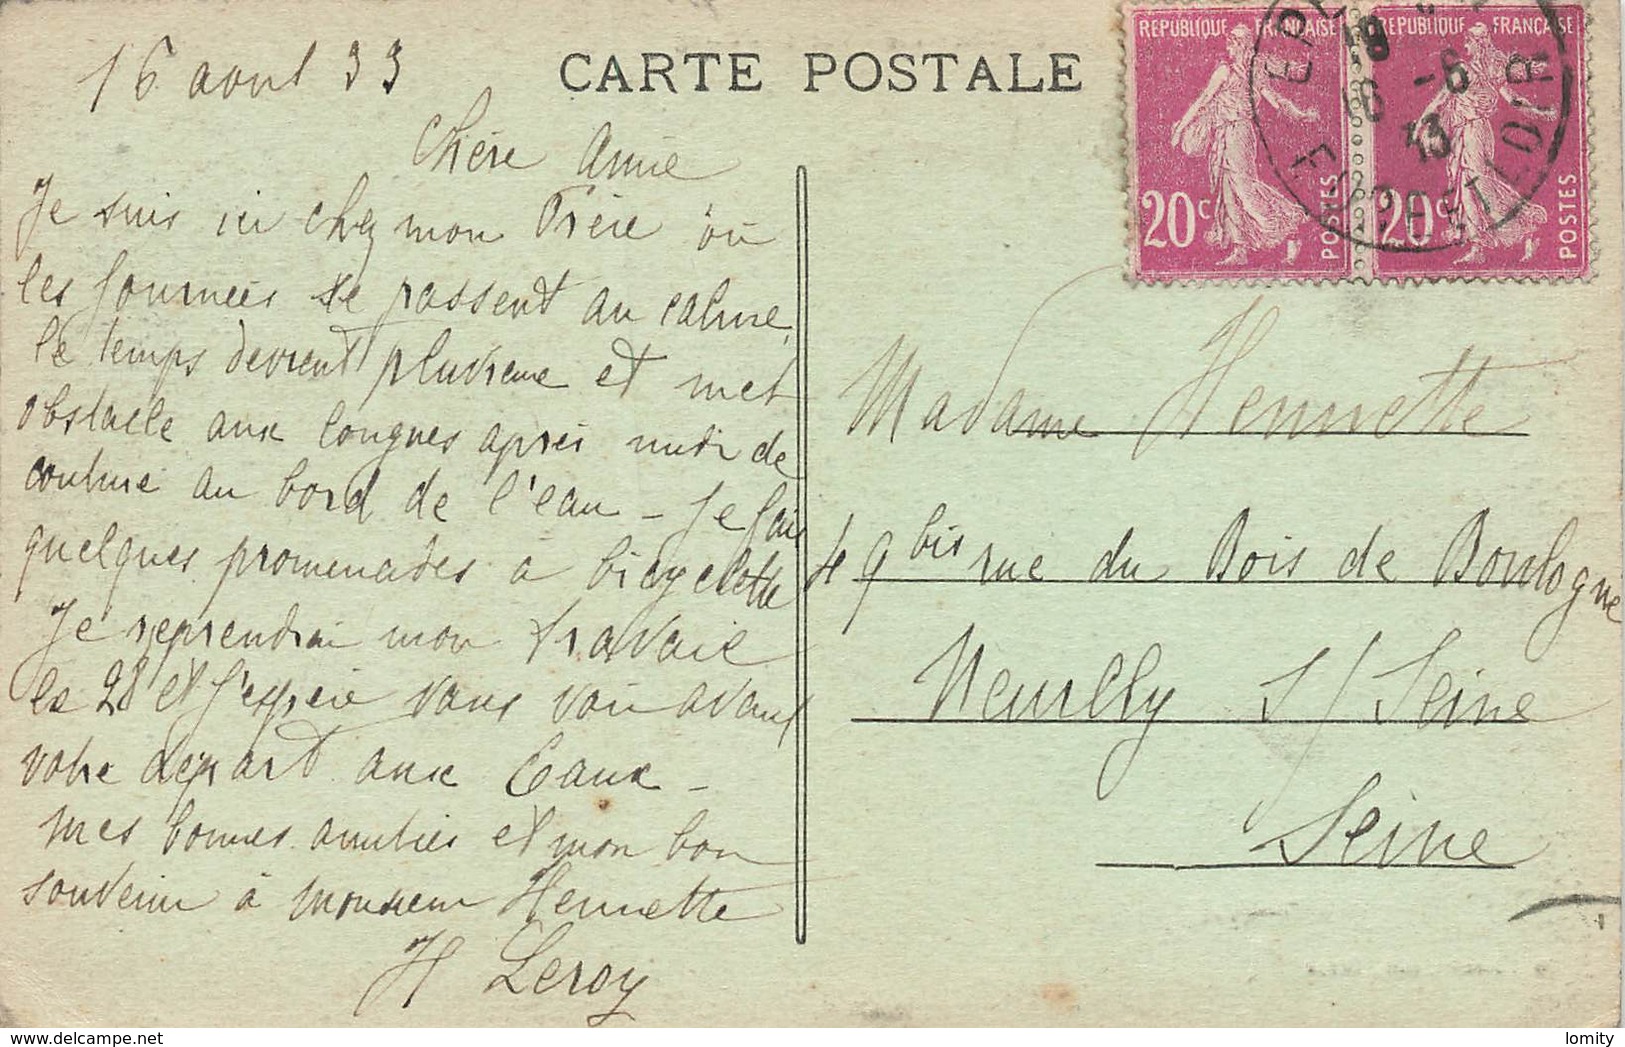 16 aout 33
CARTE POSTALE
Chère Amie
Je suis ici chez mon Frère où
les journées se passent au calme
le temps devient pluvieux et met
obstacle aux longues après midi de
couture au bord de l'eau - Je fais
quelques promenades à bicyclette
Je reprendrai mon travail
le 28 et j'espère vous voir avant
votre départ aux Eaux -
Mes bonnes amitiés et mon bon
souvenir à monsieur Hennette
H Leroy
REPUBLIQUE FRANÇAISE
20c
POSTES
REPUBLIQUE FRANÇAISE
20c
POSTES
Madame Hennette
49 bis rue du Bois de Boulogne
Neuilly s/ Seine
Seine
lomity